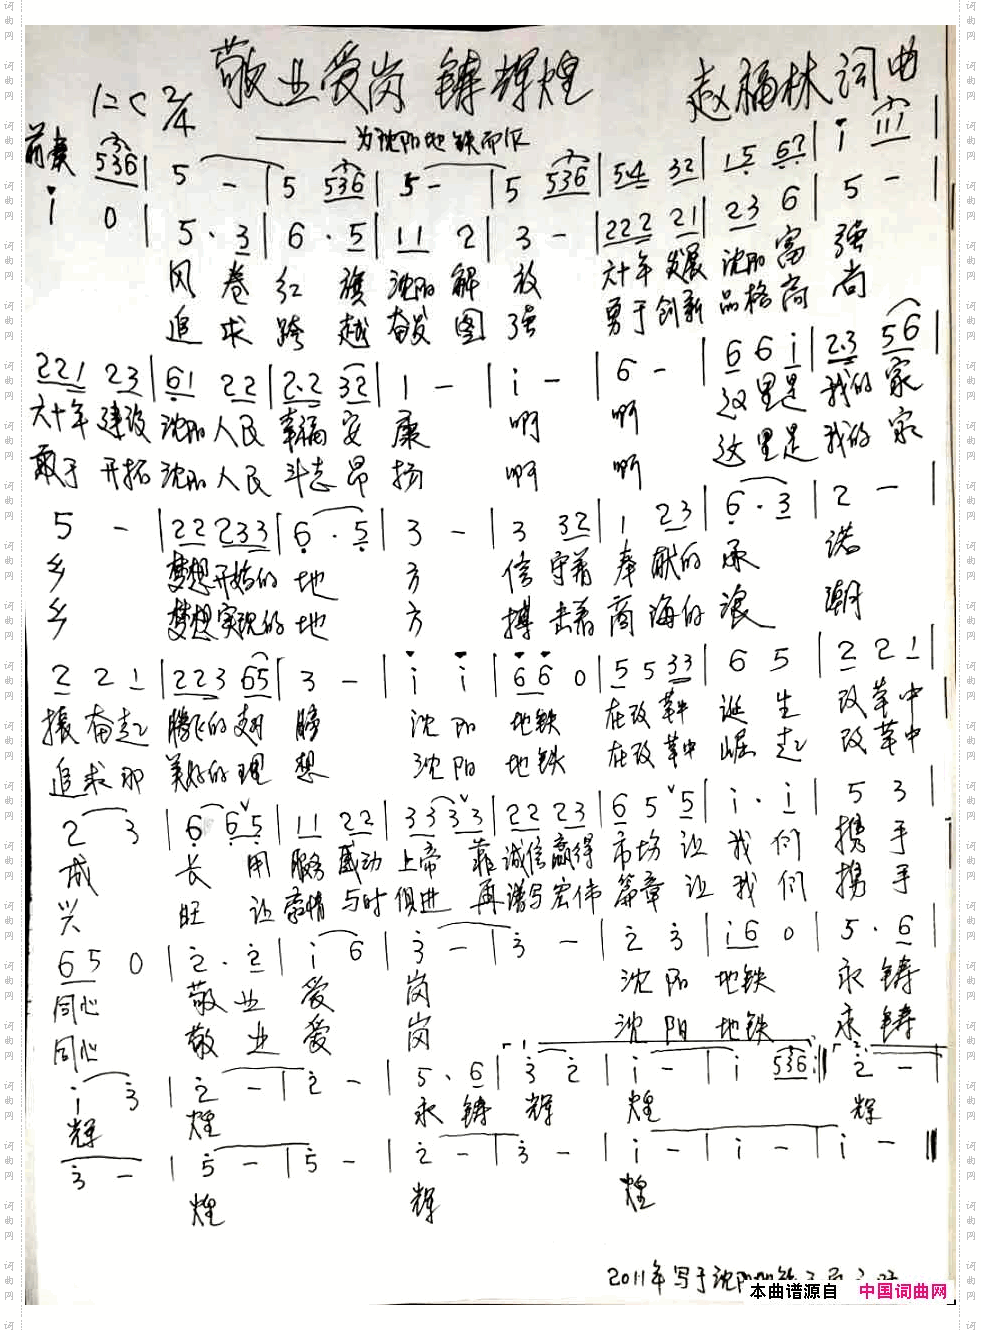 敬业爱岗铸辉煌
赵福林词曲
1=C 2/4
——为沈阳地铁而作
前奏 536 | 5 - | 5 536 | 5 - | 5 536 | 5·4 32 | 15 67 | i iii |
i 0 | 5·3 | 6·5 | 11 2 | 3 - | 222 21 | 23 6 | 5 - |
风卷红旗沈阳解放 六十年发展沈阳富强
追求跨越奋发图强 勇于创新品格高尚
221 23 | 61 22 | 2·2 32 | 1 - | i - | 6 - | 6 6 i | 2·3 56 |
六十年建设沈阳人民幸福安康 啊 啊 这里是我的家
敢于开拓沈阳人民斗志昂扬 啊 啊 这里是我的家
5 - | 22 233 | 6·5 | 3 - | 3 32 | 1 23 | 6·3 | 2 - |
乡 梦想开始的地方 信守着奉献的承诺
乡 梦想实现的地方 搏击着商海的浪潮
2 2 1 | 223 65 | 3 - | i i | 66 0 | 5 5 33 | 6 5 | 2 2 1 |
振奋起腾飞的翅膀 沈阳地铁 在改革中诞生 改革中
追求那美好的理想 沈阳地铁 在改革中崛起 改革中
2 3 | 6 6∨5 | 11 22 | 33 3∨3 | 22 23 | 6 5∨5 | i·i | 5 3 |
成长 用服务感动上帝 靠诚信赢得市场 让我们携手
兴旺 让豪情与时俱进 再谱写宏伟篇章 让我们携手
65 0 | 2·2 | i 6 | 3 - | 3 - | 2 3 | i6 0 | 5·6 |
同心 敬业爱岗 沈阳地铁 永铸
同心 敬业爱岗 沈阳地铁 永铸
i 3 | 2 - | 2 - | 5·6 | 3 2 | i - | i 536 :‖ 2 - |
辉煌 永铸辉煌 辉
3 - | 5 - | 5 - | 2 - | 3 - | i - | i - | i - ‖
煌 辉 煌
2011年写于沈阳
本曲谱源自 中国词曲网